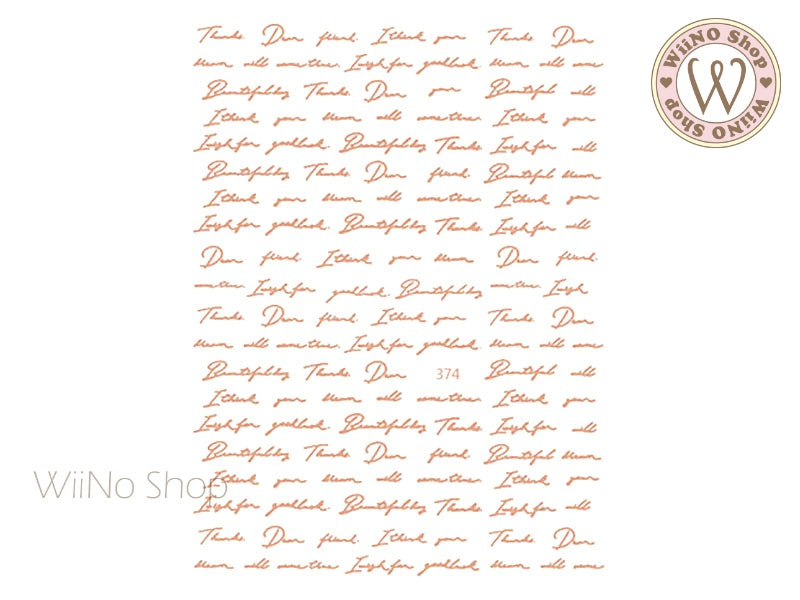 WiiNO Shop
W
WiiNO Shop
Thanks. Dear friend. I think your Thanks. Dear
will come true. I wish for goodluck. will
Beautiful day Thanks. Dear your Beautiful will
I think your will come true. I think your
I wish for goodluck. Beautiful day Thanks. I wish for will
Beautiful day Thanks. Dear friend. Beautiful
I think your will come true. I think your
I wish for goodluck. Beautiful day Thanks. I wish for will
Dear friend. I think your Dear friend.
come true. I wish for goodluck. Beautiful day come true. I wish
Thanks. Dear friend. I think your Thanks. Dear
will come true. I wish for goodluck. will
Beautiful day Thanks. Dear 374 Beautiful will
I think your will come true. I think your
I wish for goodluck. Beautiful day Thanks. I wish for will
Beautiful day Thanks. Dear friend. Beautiful
I think your will come true. I think your
WiiNo Shop
I wish for goodluck. Beautiful day Thanks. I wish for will
Thanks. Dear friend. I think your Thanks. Dear
will come true. I wish for goodluck. will